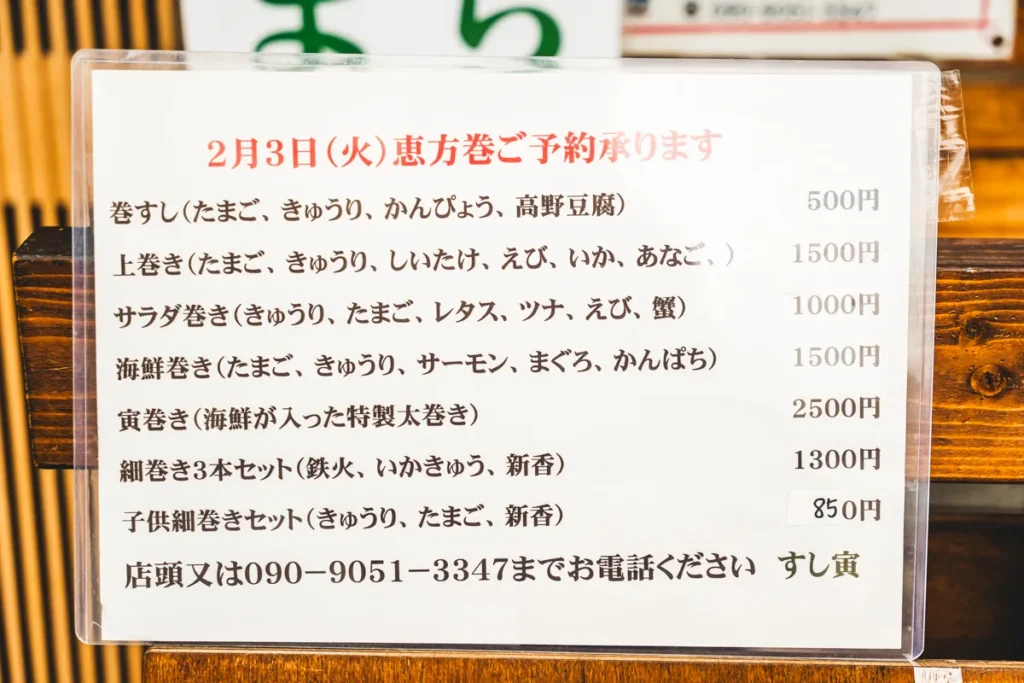 2月3日(火)恵方巻ご予約承ります
巻すし(たまご、きゅうり、かんぴょう、高野豆腐) 500円
上巻き(たまご、きゅうり、しいたけ、えび、いか、あなご、) 1500円
サラダ巻き(きゅうり、たまご、レタス、ツナ、えび、蟹) 1000円
海鮮巻き(たまご、きゅうり、サーモン、まぐろ、かんぱち) 1500円
寅巻き(海鮮が入った特製太巻き) 2500円
細巻き3本セット(鉄火、いかきゅう、新香) 1300円
子供細巻きセット(きゅうり、たまご、新香) 850円
店頭又は090-9051-3347までお電話ください すし寅